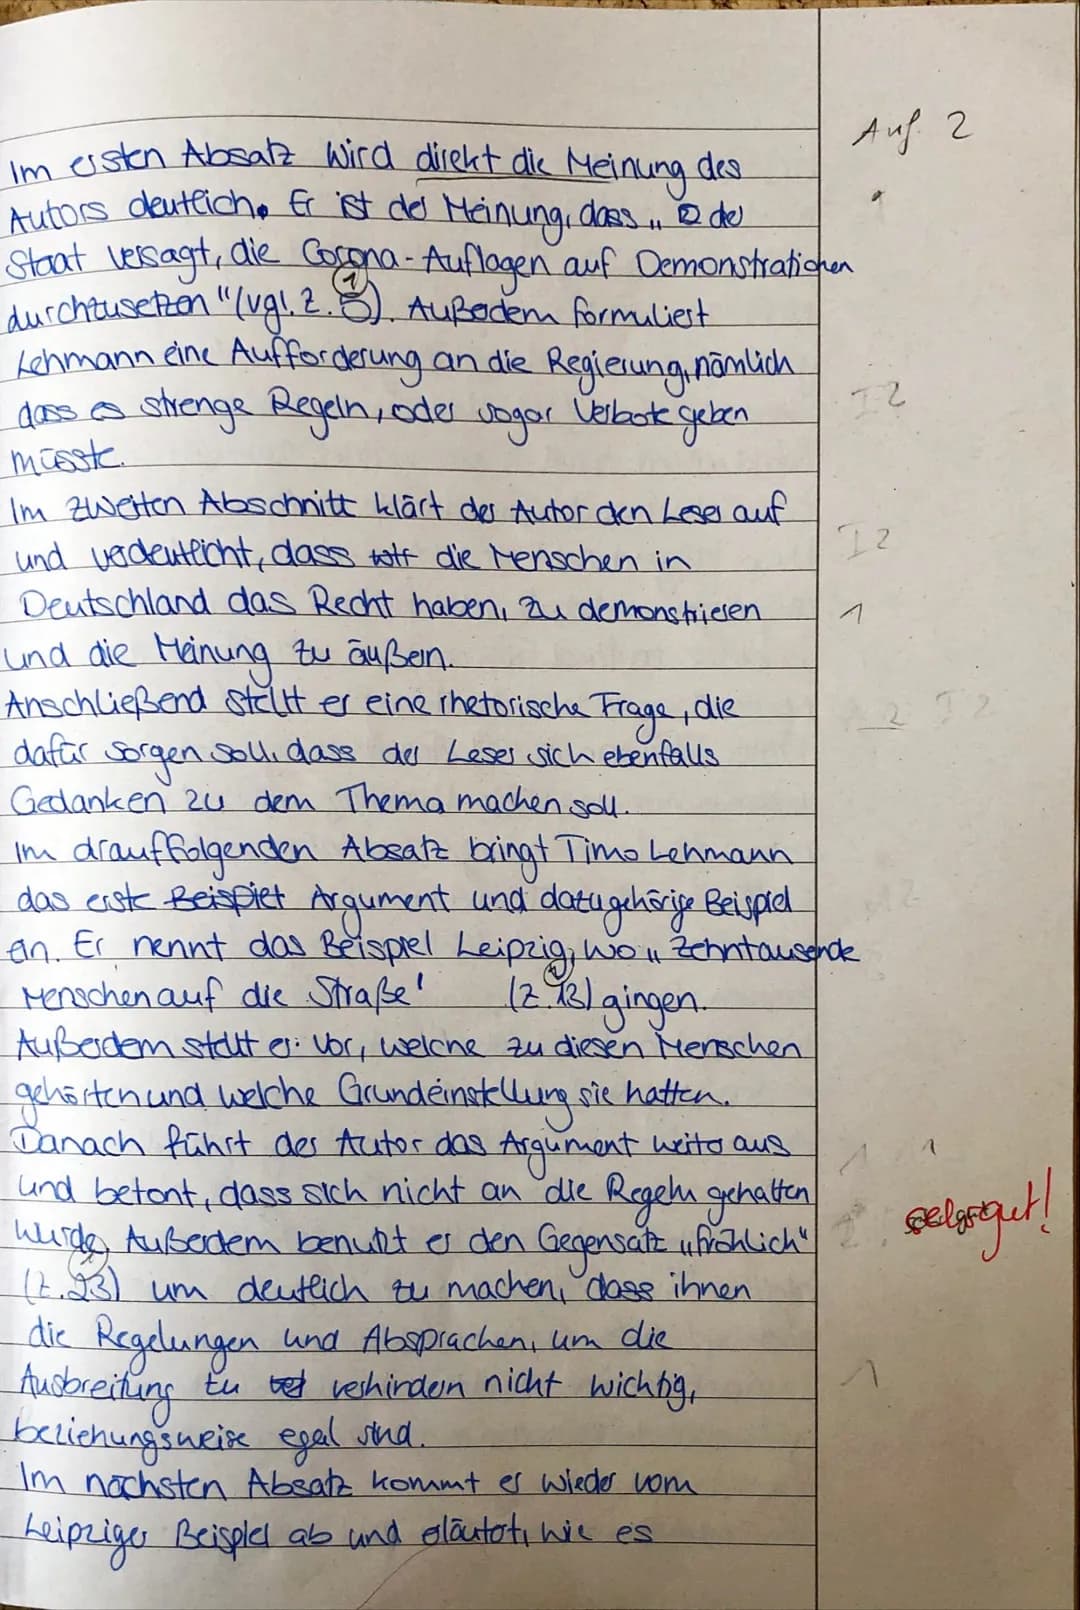 Auf. 2
Im ersten Absatz wird direkt die Meinung des
Autors deutlich. Er ist der Meinung, dass „ der
Staat versagt, die Corona-Auflagen auf Demonstrationen
durchzusetzen "(vgl. Z. 5). Außerdem formuliert
Lehmann eine Aufforderung an die Regierung, nämlich
dass es strenge Regeln, oder sogar Verbote geben
I2
müsste.
Im zweiten Abschnitt klärt der Autor den Leser auf
und verdeutlicht, dass die Menschen in
I2
Deutschland das Recht haben, zu demonstrieren
1
und die Meinung zu äußern.
Anschließend stellt er eine rhetorische Frage, die
2 I2
dafür sorgen soll, dass der Leser sich ebenfalls
Gedanken zu dem Thema machen soll.
Im drauffolgenden Absatz bringt Timo Lehmann
das erste Beispiel Argument und dazugehörige Beispiel
an. Er nennt das Beispiel Leipzig, wo „ Zehntausende
Menschen auf die Straße" (Z. 13) gingen.
Außerdem stellt er vor, welche zu diesen Menschen
gehörten und welche Grundeinstellung sie hatten.
Danach führt der Autor das Argument weiter aus
1 1
und betont, dass sich nicht an die Regeln gehalten
sehr gut!
wurde. Außerdem benutzt er den Gegensatz „fröhlich"
(Z. 23) um deutlich zu machen, dass ihnen
die Regelungen und Absprachen, um die
Ausbreitung zu verhindern nicht wichtig,
1
beziehungsweise egal sind.
Im nächsten Absatz kommt er wieder vom
Leipziger Beispiel ab und erläutert, wie es